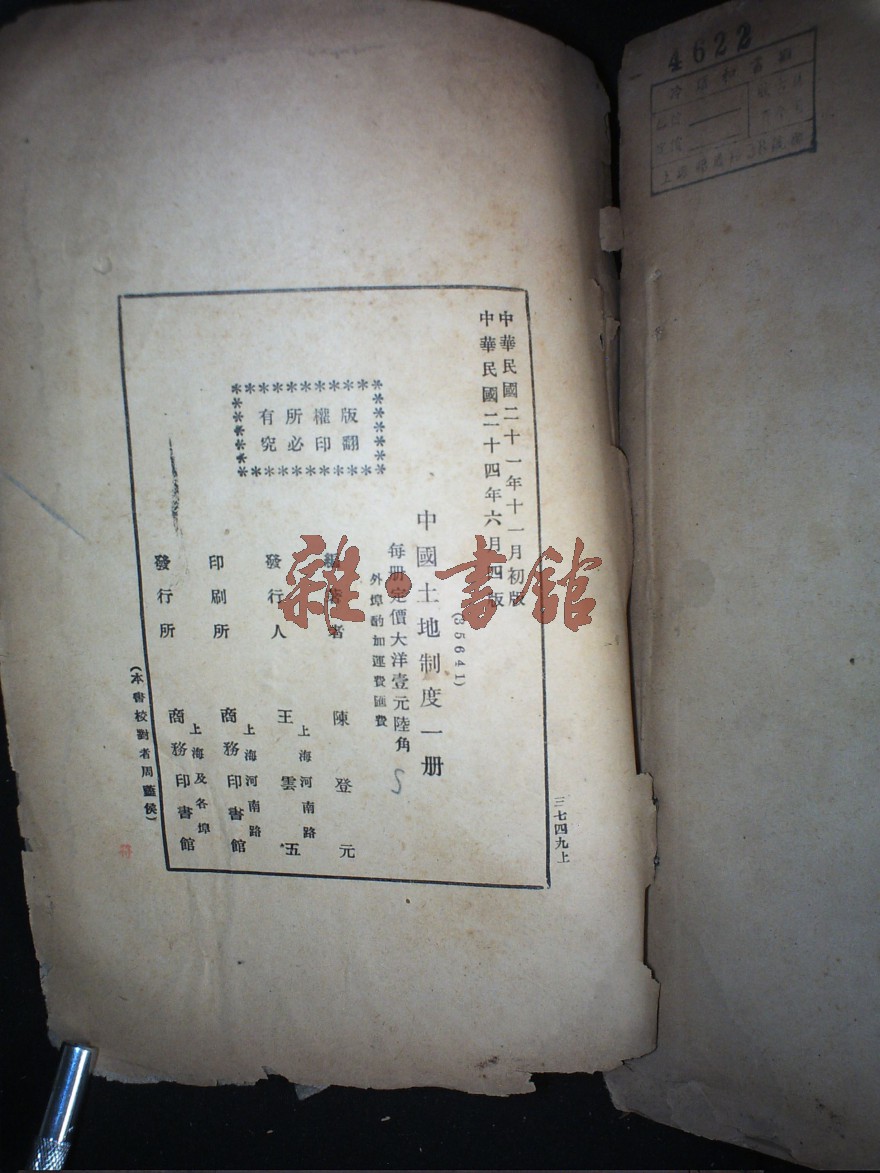 中華民國二十一年十一月初版
中華民國二十四年六月四版
(35641)
中國土地制度一册
每册定價大洋壹元陸角
外埠酌加運費匯費
版權所有
翻印必究
陳登元
發行人 王雲五
上海河南路
印刷所 商務印書館
上海河南路
發行所 商務印書館
上海及各埠
(本書校對者周藎侯)
三七四九上
雜·書館
4622